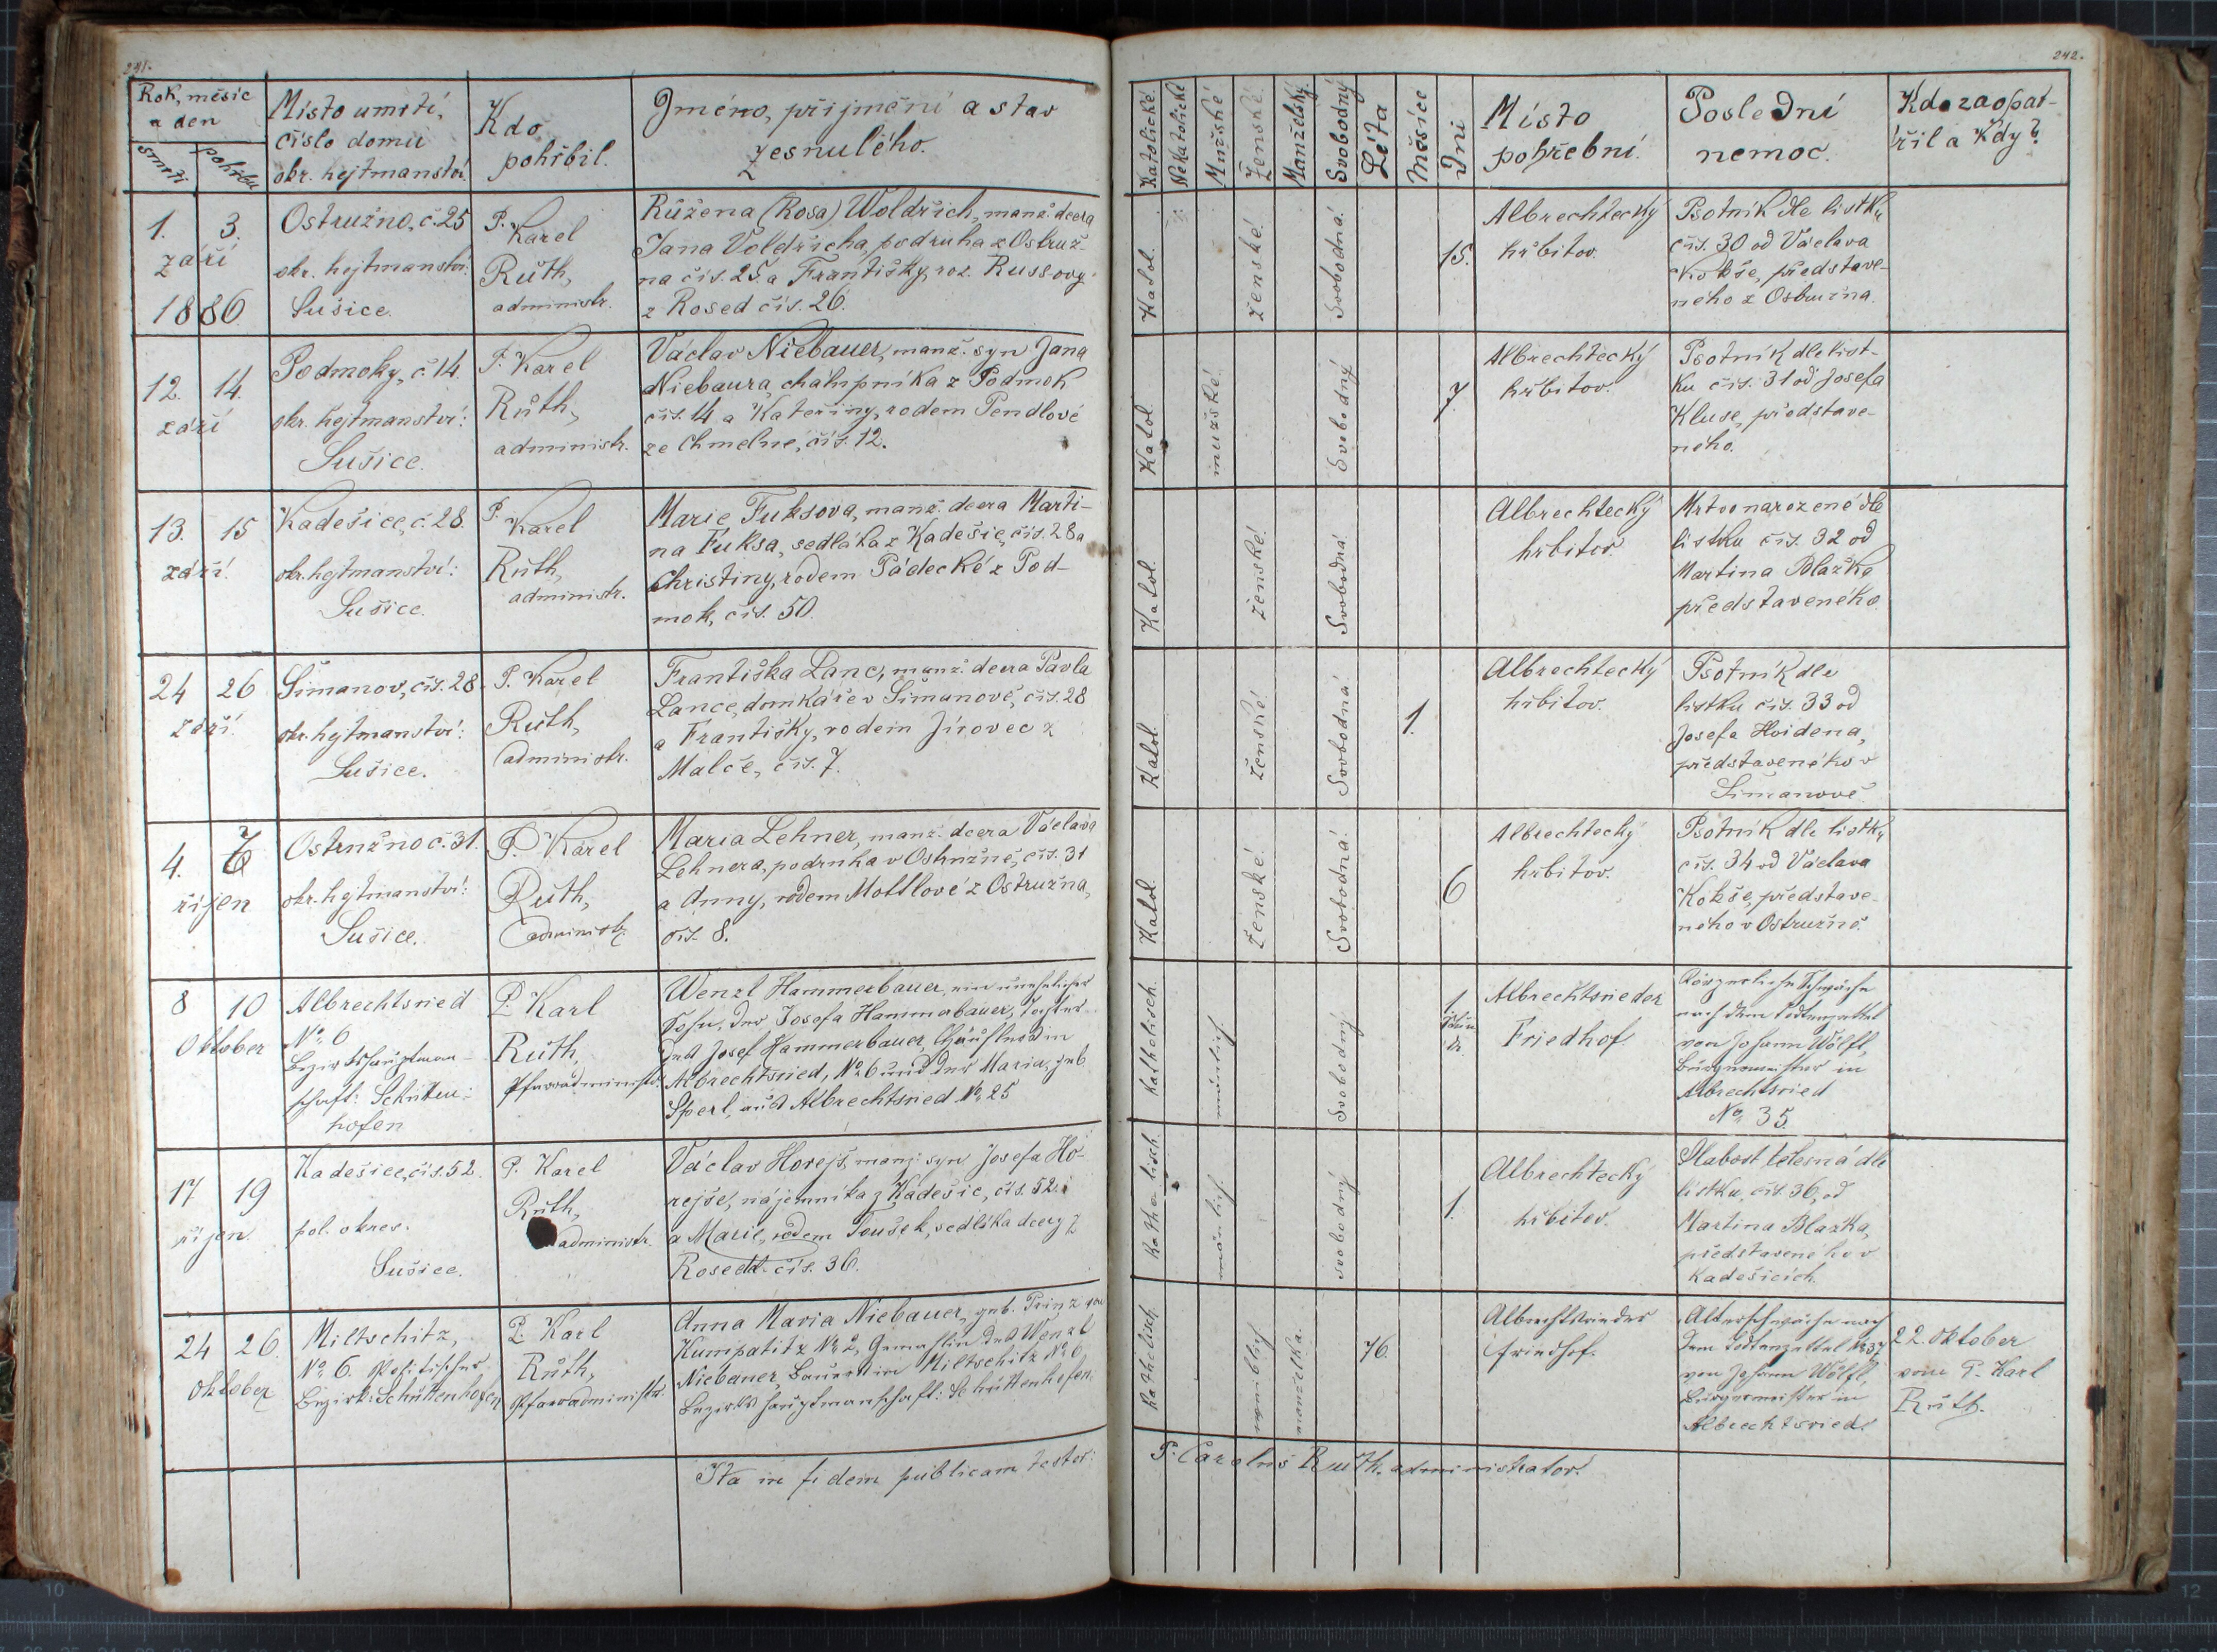 241.
Rok, měsíc
a den
smrti
pohřbu
Místo umrtí,
číslo domu
okr. hejtmanství.
Kdo
pohřbil.
Jméno, přijmění a stav
zesnulého.
1. 3.
září
1886
Ostružno, č. 25
okr. hejtmanství:
Sušice.
P. Karel
Ruth,
administr.
Růžena (Rosa) Woldřich, manž. dcera
Jana Voldřicha, podruha z Ostruž-
na čís. 25. a Františky, roz. Russovy
z Rosed čís. 26.
12. 14.
září
Podmoky, č. 14.
okr. hejtmanství:
Sušice.
P. Karel
Ruth,
administr.
Václav Niebauer, manž. syn Jana
Niebaura, chalupníka z Podmok
čís. 14 a Kateřiny, rodem Pendlové
ze Chmelné, čís. 12.
13. 15
září.
Kadešice, č. 28.
okr. hejtmanství:
Sušice.
P. Karel
Ruth,
administr.
Marie Fuksova, manž. dcera Marti-
na Fuksa, sedláka z Kadešic, čís. 28 a
Christiny, rodem Pádecké z Pod-
mok, čís. 50.
24 26
září.
Šimanov, čís. 28.
okr. hejtmanství:
Sušice.
P. Karel
Ruth,
administr.
Františka Lanc, manž. dcera Pavla
Lance, domkáře v Šimanově, čís. 28
a Františky, rodem Jírovec z
Malče, čís. 7.
4.
říjen
Ostružno č. 31.
okr. hejtmanství:
Sušice.
P. Karel
Ruth,
administr.
Maria Lehner, manž. dcera Václava
Lehnera, podruha v Ostružně, čís. 31
a Anny, rodem Mottlové z Ostružna,
čís. 8.
8 10
Oktober
Albrechtsried
No. 6
Bezirkshauptman-
schaft: Schütten-
hofen
P. Karl
Ruth,
Pfarradministr.
Wenzl Hammerbauer, ein unehelicher
Sohn, der Josefa Hammerbauer, Tochter
des Josef Hammerbauer, Häuslers in
Albrechtsried, No. 6 und der Maria, geb.
Sperl, aus Albrechtsried No. 25
17 19
říjen
Kadešice, čís. 52.
pol. okres.
Sušice.
P. Karel
Ruth,
administr.
Václav Horejš, manž. syn Josefa Ho-
rejše, nájemníka z Kadešic, čís. 52.
a Marie, rodem Soušek, sedláka dcery z
Rosed čís. 36.
24 26.
Oktober
Miltschitz,
No. 6. Politischer
Bezirk: Schüttenhofen
P. Karl
Ruth,
Pfarradministr.
Anna Maria Niebauer, geb. Prinz von
Kumpatitz No. 2, Gemahlin des Wenzl
Niebauer, Bauers in Miltschitz No. 6,
Bezirkshauptmanschaft: Schüttenhofen.
Ita in fidem publicam testor:
242.
Katolické
Nekatolické
Mužské
Ženské
Manželský
Svobodný
Léta
Měsíce
Dni
Místo
pohřební.
Poslední
nemoc.
Kdo zaopat-
řil a kdy?
Katol.
ženské.
Svobodná.
15.
Albrechtecký
hřbitov.
Psotník dle lístku
čís. 30 od Václava
Kokše, představe-
ného z Ostružna.
Katol.
mužské.
Svobodný
7.
Albrechtecký
hřbitov.
Psotník dle líst-
ku čís. 31 od Josefa
Kluse, představe-
ného.
Katol.
ženské.
Svobodná
Albrechtecký
hřbitov.
Mrtvonarozené dle
lístku čís. 32 od
Martina Blažka
představeného
Katol.
ženské.
Svobodná.
1.
Albrechtecký
hřbitov.
Psotník dle
lístku čís. 33 od
Josefa Hoidena,
představeného v
Šimanově
Katol.
Ženské.
Svobodná.
6
Albrechtecký
hřbitov.
Psotník dle lístku
čís. 34 od Václava
Kokše, představe-
ného v Ostružně.
Katholisch.
mänlich
Svobodný
1
Albrechtsrieder
Friedhof.
Körperliche Schwäche
nach dem Todtenzettel
von Johann Wölfl,
Bürgermeister in
Albrechtsried
No. 35.
Katholisch.
mänlich.
svobodný
1.
Albrechtecký
hřbitov.
Slabost tělesná dle
lístku, čís. 36, od
Martina Blažka,
představeného v
Kadešicích.
Katholisch.
weiblich
manželka.
76.
Albrechtsrieder
Friedhof.
Altersschwäche nach
dem Todtenzettel No 37
von Johann Wölfl,
Bürgermeister in
Albrechtsried.
22. Oktober
vom P. Karl
Ruth.
P. Carolus Ruth, administrator.